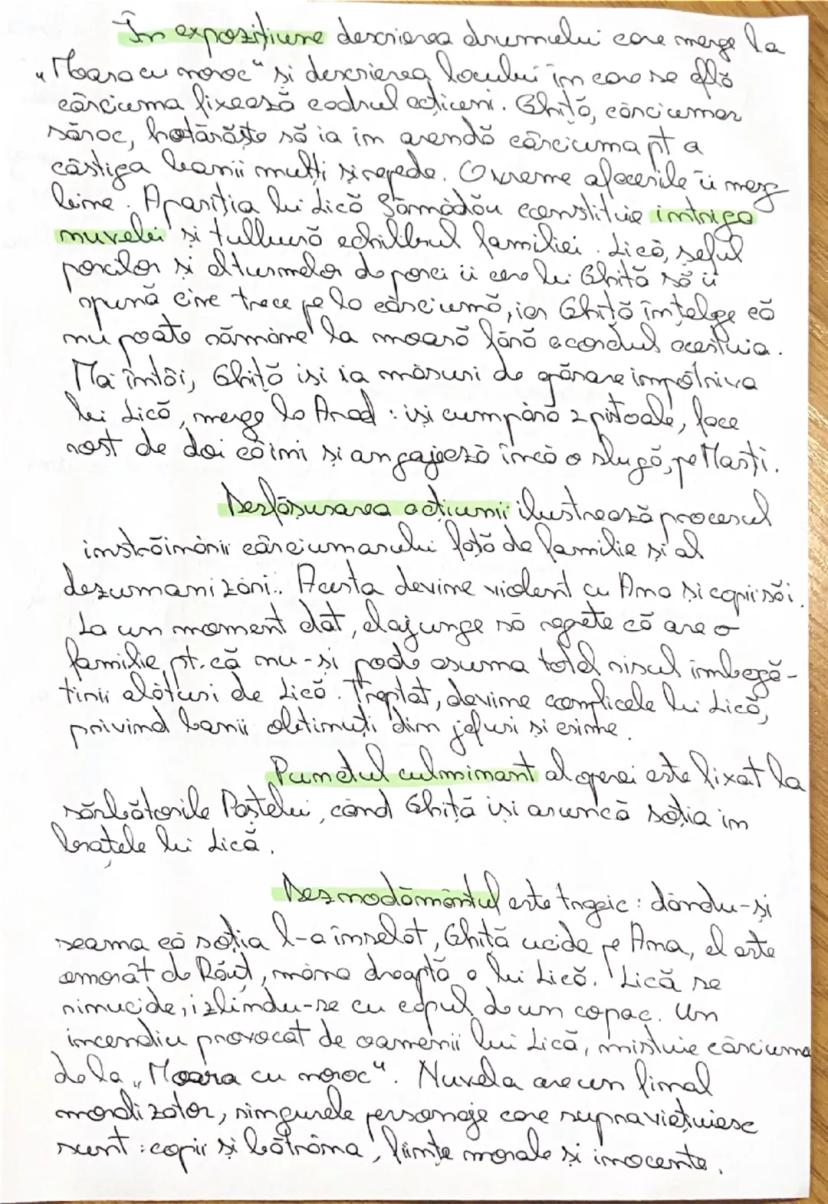 În expozițiune descrierea drumului care merge la
„Moara cu noroc" și descrierea locului în care se află
cârciuma fixează cadrul acțiunii. Ghiță, cârciumar
săroc, hotărăște să ia în arendă cârciuma pt a
câștiga banii mulți și repede. O vreme afacerile îi merg
bine. Apariția lui Lică Sămădău constituie intriga
nuvelei și tulbură echilbrul familiei. Lică, șeful
porcilor și al turmelor de porci îi cere lui Ghiță să îi
spună cine trece pe la cârciumă, iar Ghiță înțelge că
nu poate rămâne la moară fără acordul acestuia.
Mai întâi, Ghiță iși ia măsuri de apărare împotriva
lui Lică, merge la Arad: iși cumpără 2 pistoale, face
rost de doi câini și angajează încă o slugă, pe Marți.
Desfășurarea acțiunii ilustrează procesul
înstrăinării cârciumarului față de familie și al
dezumanizări.. Acesta devine violent cu Ana și copii săi.
La un moment dat, el ajunge să regrete că are o
familie pt. că nu-și poate asuma total riscul îmbogă-
țirii alături de Lică. Treptat, devine complicele lui Lică,
privind banii obținuți din jefuri și crime.
Punctul culminant al operei este fixat la
sărbătorile Paștelui, când Ghiță iși aruncă soția în
brațele lui Lică.
Deznodământul este tragic: dându-și
seama că soția l-a înșelat, Ghiță ucide pe Ana, el este
omorât de Răuț, mâna dreaptă a lui Lică. Lică se
sinucide, izbindu-se cu capul de un copac. Un
incendiu provocat de oamenii lui Lică, mistuie cârciuma
de la „Moara cu noroc". Nuvela are un final
moralizator, singurele personaje care supraviețuiesc
sunt: copii și bătrâna, ființe morale și inocente.